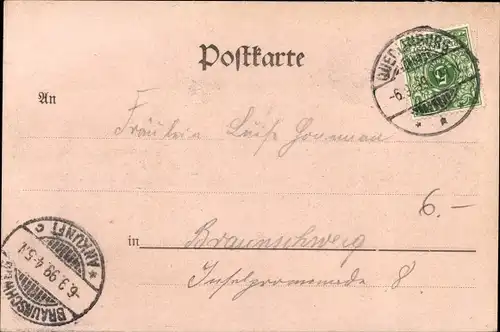 Postkarte
QUEDLINBURG
-6.3
An
Fräulein Luise
6.-
in Braunschweig
Inselpromenade 8.
BRAUNSCHWEIG
-6.3.99.4-5N.
* ANKUNFT C